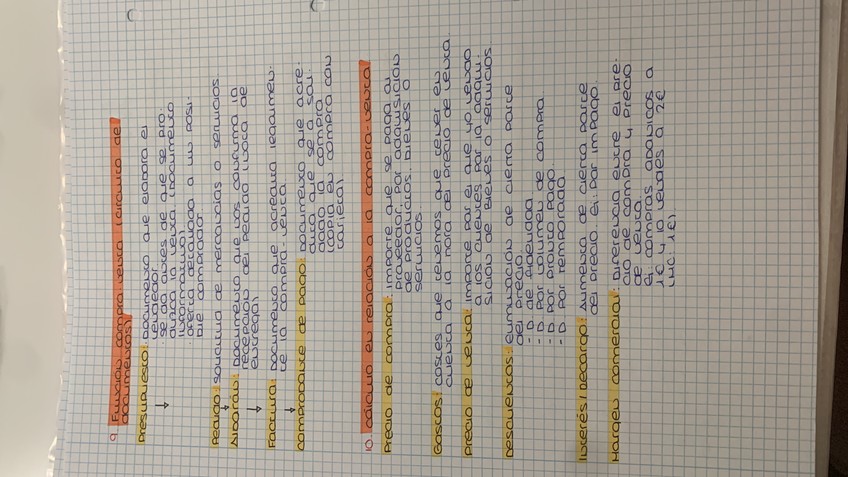 9 Función compra-venta (circuito de
documentos)
Presupuesto: documento que elabora el
vendedor.
· se da antes de que se pro-
duzca la venta (documento
informativo)
· oferta detallada a un posi-
ble comprador
↓
Pedido: solicitud de mercancías o servicios
↓
Albarán: documento que nos confirma la
recepción del pedido (nota de
entrega)
↓
Factura: documento que acredita legalmen-
te la compra-venta
↓
Comprobante de pago: documento que acre-
dita que se ha sal-
dado la compra
(copia en compra con
tarjeta)
10. Cálculo en relación a la compra-venta
Precio de compra: importe que se paga a
proveedor, por adquisición
de productos, bienes o
servicios.
Gastos: costes que tenemos que tener en
cuenta a la hora del precio de venta
Precio de venta: importe por el que yo vendo
a los clientes por la adqui-
sición de bienes o servicios
Descuentos: eliminación de cierta parte
del precio
- D. de fidelidad
- D. por volumen de compra
- D. por pronto pago.
- D. por temporada
Interés/Recargo: aumento de cierta parte
del precio Ej. Por impago.
Margen comercial: diferencia entre el pre-
cio de compra y precio
de venta.
Ej compras apabicos a
1€ y lo vendes a 2€
(MC 1€)